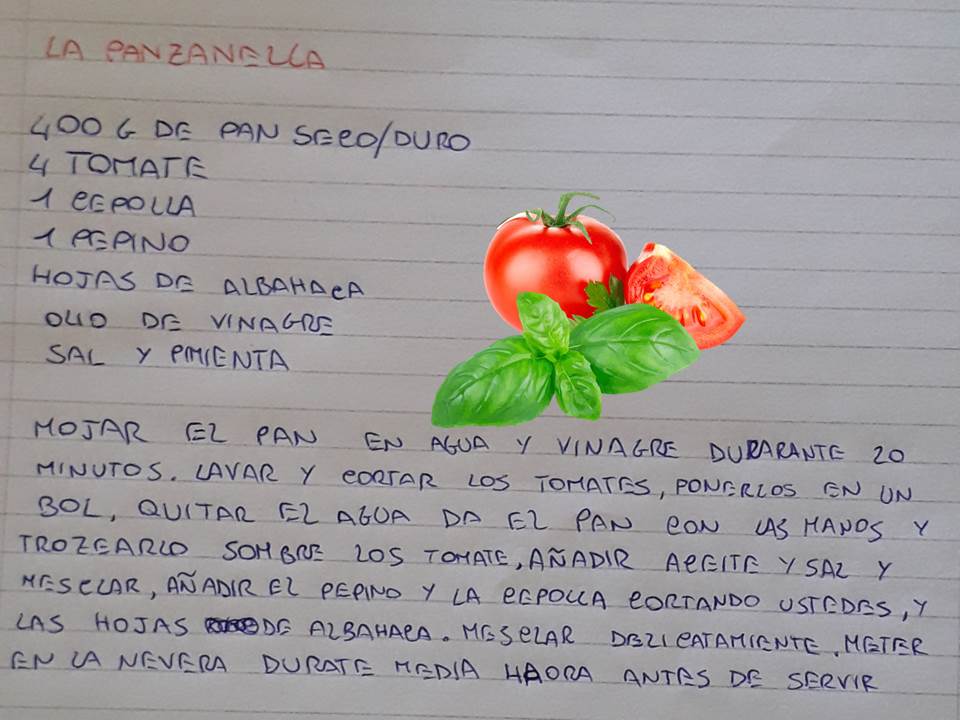 LA PANZANELLA
400 G DE PAN SECO/DURO
4 TOMATE
1 CEPOLLA
1 PEPINO
HOJAS DE ALBAHACA
OLIO DE VINAGRE
SAL Y PIMIENTA
MOJAR EL PAN EN AGUA Y VINAGRE DURARANTE 20
MINUTOS. LAVAR Y CORTAR LOS TOMATES, PONERLOS EN UN
BOL, QUITAR EL AGUA DA EL PAN CON LAS MANOS Y
TROZEARLO SOMBRE LOS TOMATE, AÑADIR ACEITE Y SAL Y
MESCLAR, AÑADIR EL PEPINO Y LA CEPOLLA CORTANDO USTEDES, Y
LAS HOJAS DE ALBAHACA. MESCLAR DELICATAMIENTE. METER
EN LA NEVERA DURATE MEDIA HAORA ANTES DE SERVIR